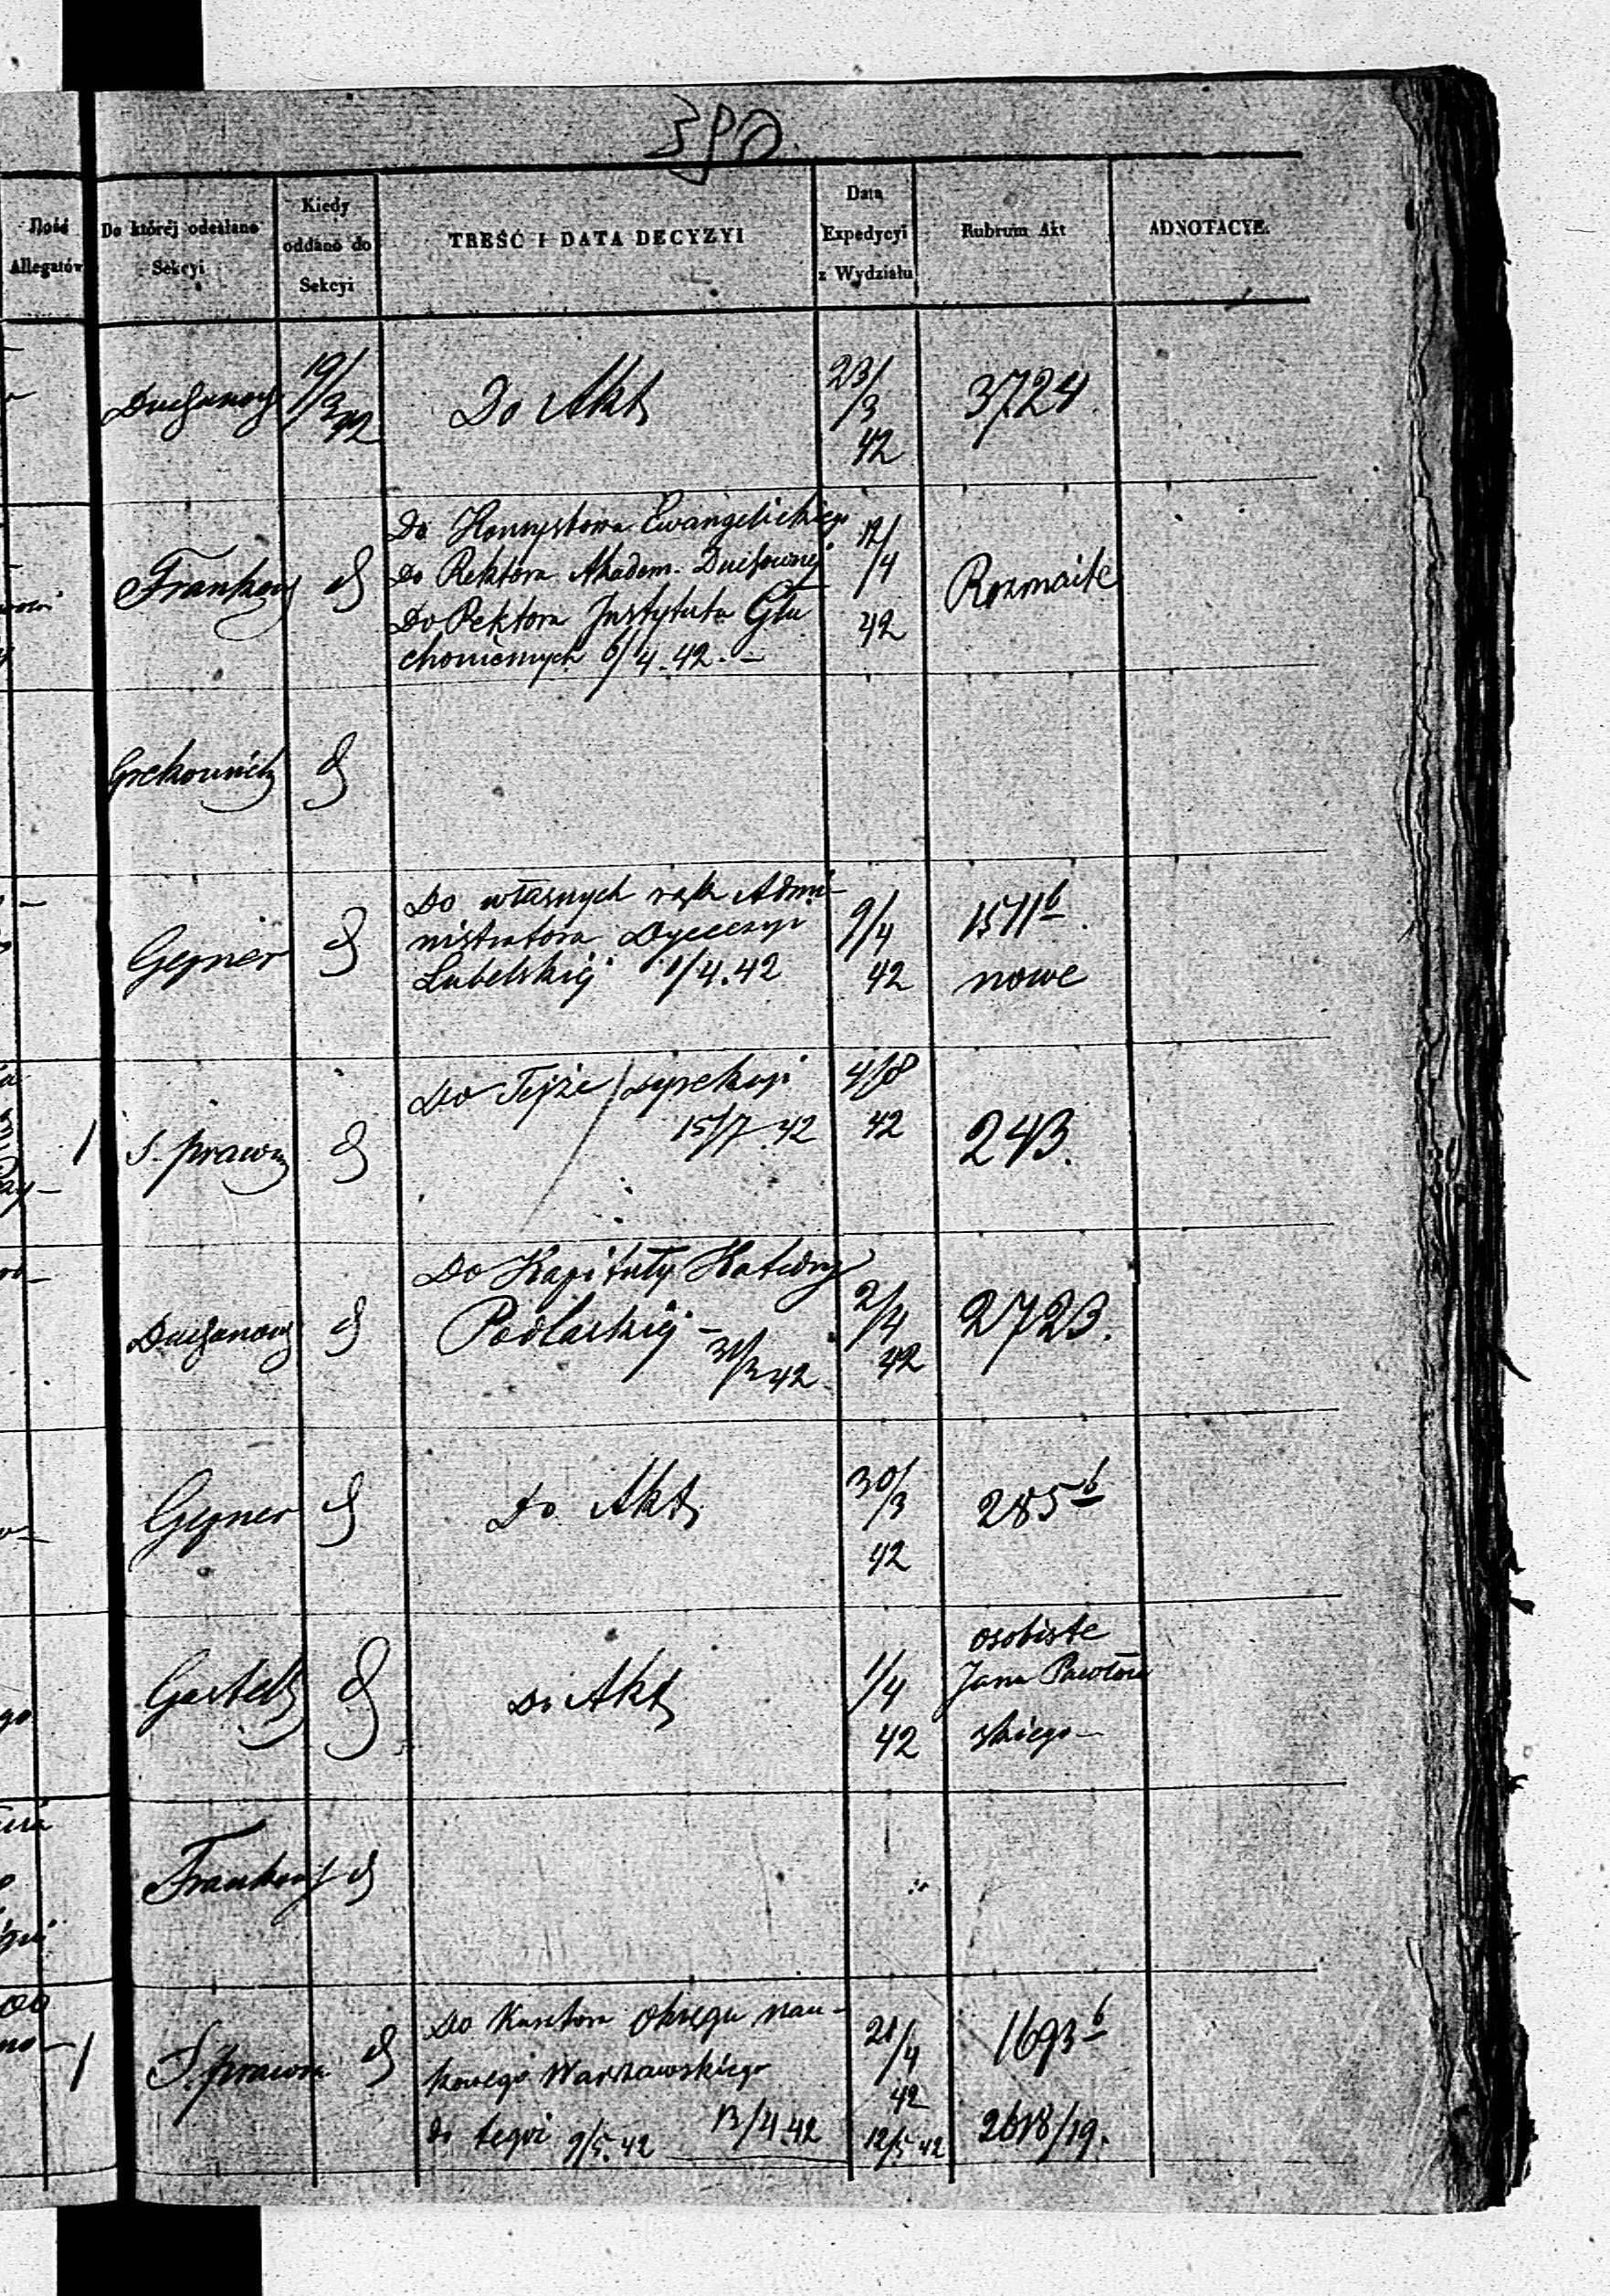 380.
Ilość Allegatów
Do któréj odesłano Sekcyi
Kiedy oddano do Sekcyi
TREŚĆ I DATA DECYZYI
Data Expedycyi z Wydziału
Rubrum Akt
ADNOTACYE.
19/3 42 Do Akt 23/3 42 3724
Do Konsystorza Ewangelickiego
Do Rektora Akadem. Duchownej
Do Rektora Instytutu Głu
choniemych 6/4.42. —
12/4 42
Rozmaite
Do własnych rąk Admi-
nistratora Dyecezyi
Lubelskiej /4.42
Gepner
9/4 42
1511 b.
nowe
1
S. prawna
Do Tejże Dyrekcyi
15/7 42
4/8 42
243.
Do Kapituły Katedry
Podlaskiej —
31/3 42
2/4 42
2723.
Gepner Do Akt 30/3 42 285 b
Do Akt
1/4 42
osobiste
Jana Pawłow
skiego —
1
S. prawna
Do Kuratora Okręgu Nau-
kowego Warszawskiego
13/4.42
do tegoż 9/5.42
21/4 42
12/5 42
1693 b
2618/19.